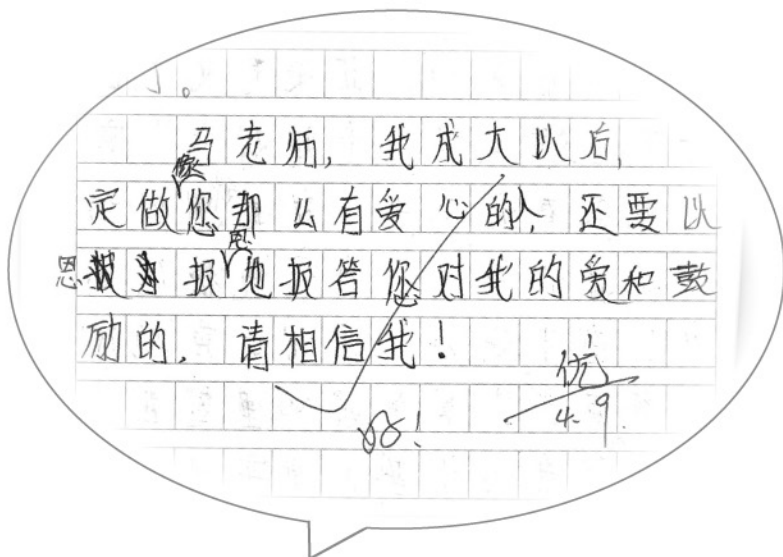 了。
马老师，我成大以后，
定做像您那么有爱心的人，还要以
恩报恩地报答您对我的爱和鼓
励的，请相信我！
好！
优
4.9